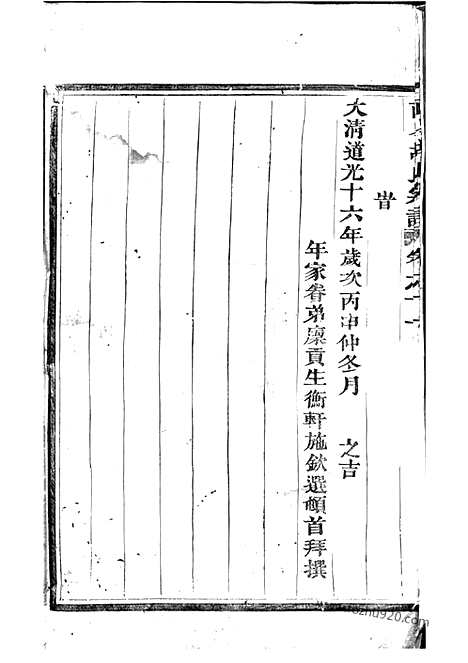 旹
大清道光十六年歲次丙申仲冬月 之吉
年家眷弟廪貢生衡軒施欽選頓首拜撰